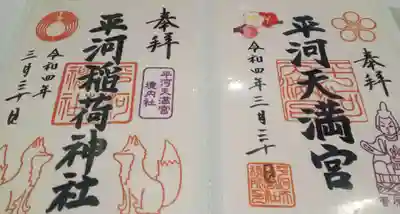 奉拝
平河天満宮
令和四年三月三十日
奉拝
平河天満宮
境内社
平河稲荷神社
令和四年
三月三十日